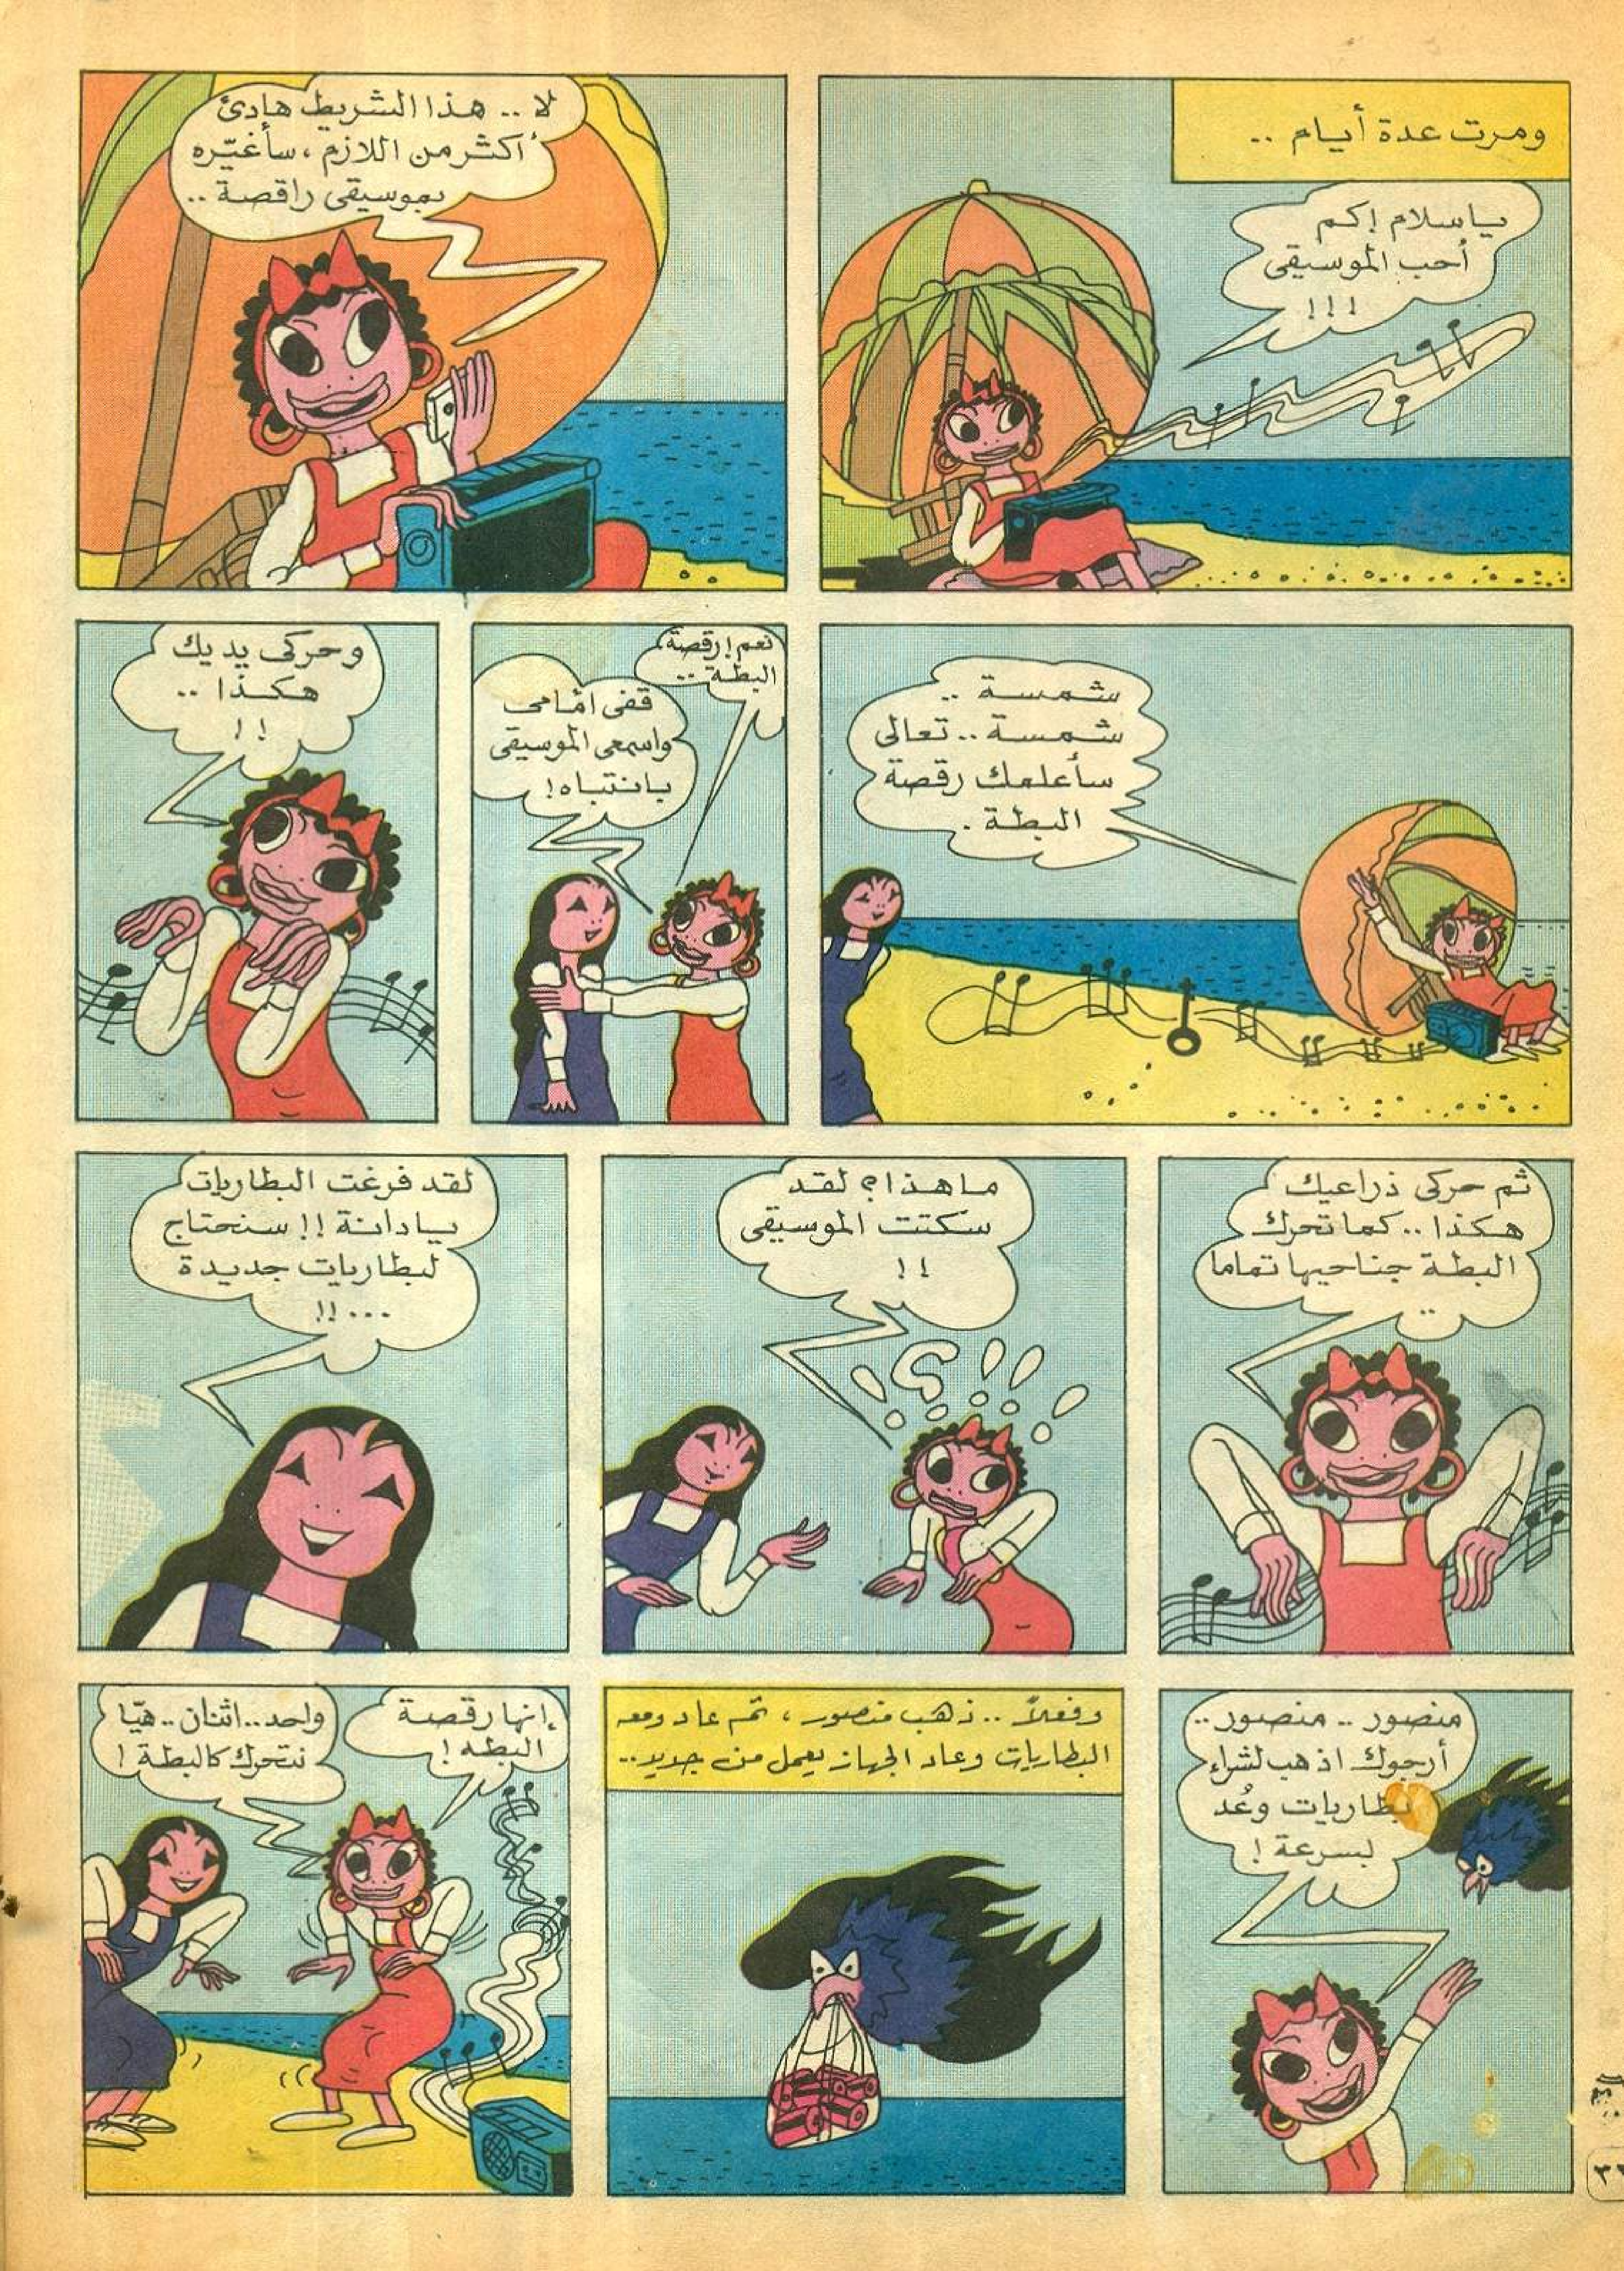 ومرت عدة أيام ..
ياسلام إكم
أحب الموسيقى
!!!
لا .. هذا الشريط هادئ
أكثر من اللازم ، سأغيّره
بموسيقى راقصة ..
شمسة ..
شمسة .. تعالى
سأعلمك رقصة
البطة .
نعم ! رقصة
البطة ..
قفى أمامى
واسمعى الموسيقى
بانتباه !
وحركى يديك
هكذا ..
!!
ثم حركى ذراعيك
هكذا .. كما تحرك
البطة جناحيها تماما
..
ما هذا ؟ لقد
سكتت الموسيقى
!!
لقد فرغت البطاريات
يا دانة !! سنحتاج
لبطاريات جديدة
...!!
منصور .. منصور ..
أرجوك اذهب لشراء
بطاريات وعُد
بسرعة !
وفعلاً .. ذهب منصور ، ثم عاد ومعه
البطاريات وعاد الجهاز يعمل من جديد ..
إنها رقصة
البطه !
واحد .. اثنان .. هيّا
نتحرك كالبطة !